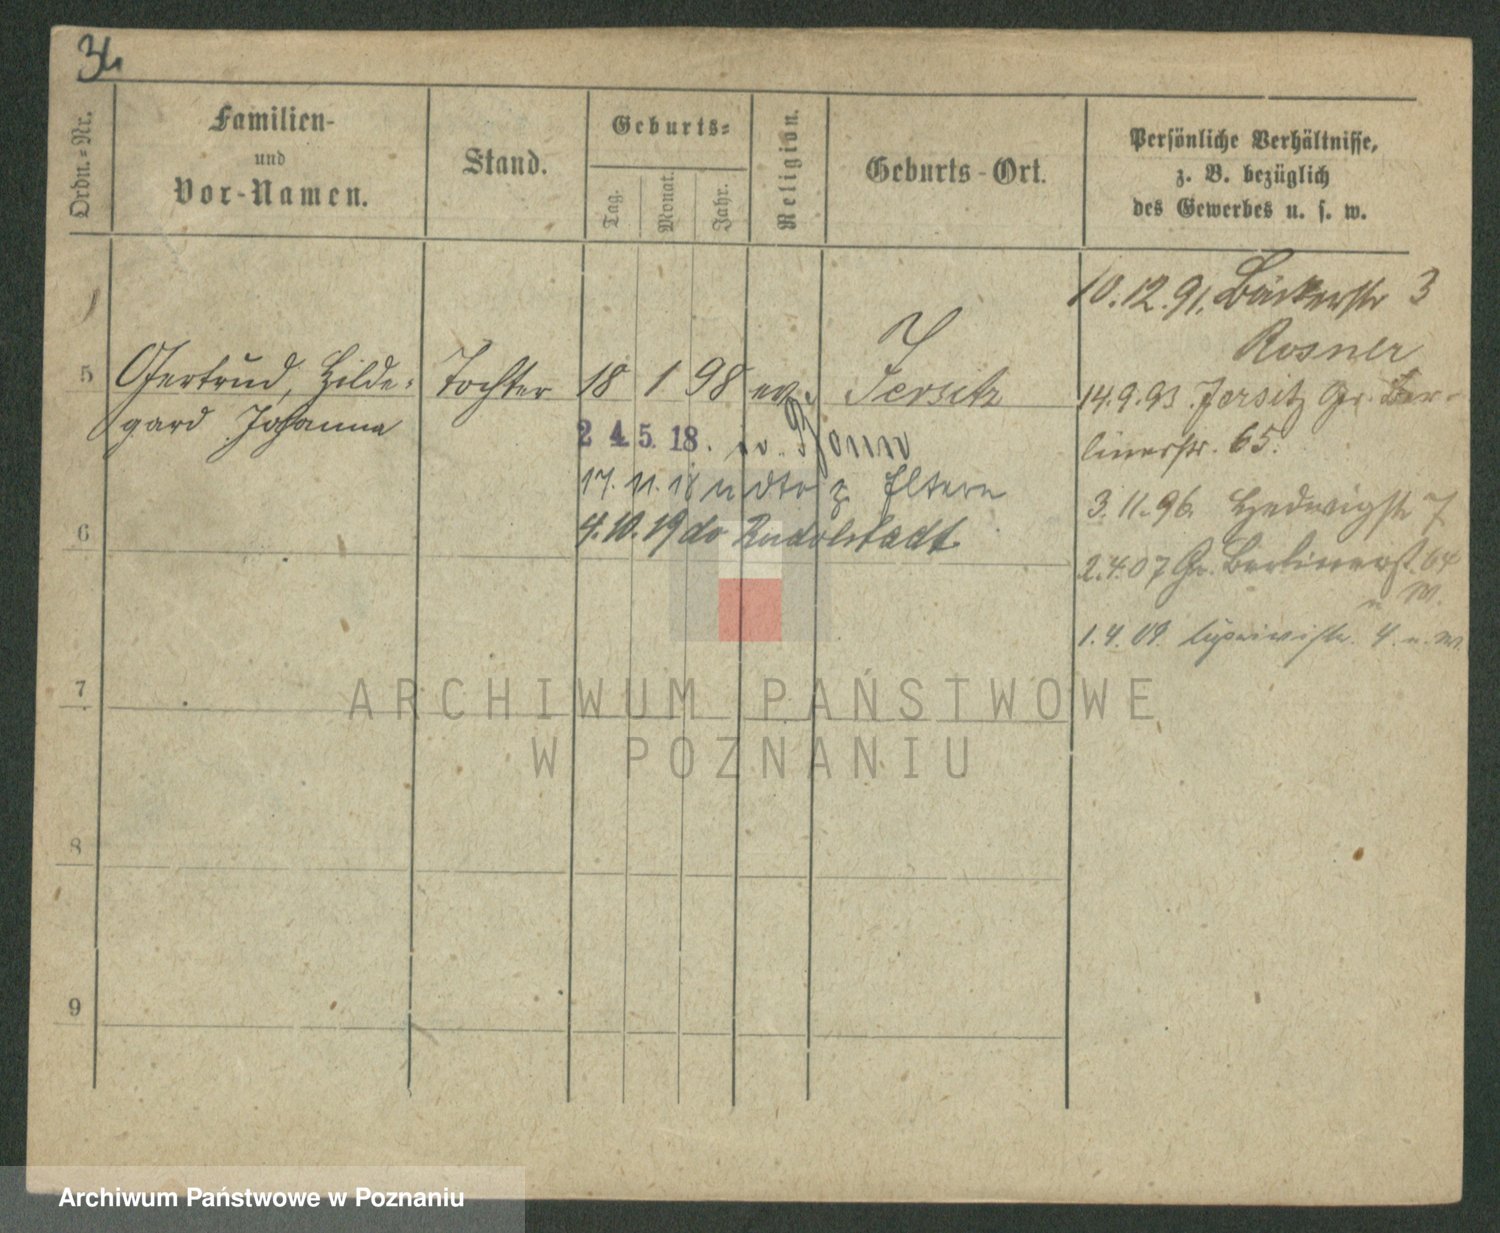 34
Ordn.-Nr.
Familien-
und
Vor-Namen.
Stand.
Geburts-
Tag.
Monat.
Jahr.
Religion.
Geburts-Ort.
Persönliche Verhältnisse,
z. B. bezüglich
des Gewerbes u. s. w.
10.12.91. Bäckerstr 3
Rosner
5 Gertrud, Hilde- Tochter 18 1 98 ev. Jersitz
gard Johanna
14.9.93. Jersitz Gr. Ber-
linerstr. 65.
2 4. 5. 18. Bonn
17. 11. 18 dto z Eltern
3.11.96. Hedwigstr 7
4.10.19 do Rudolstadt
6
2.4.07 Gr. Berlinerst. 64
1.4.09. 4
7
8
9
ARCHIWUM PAŃSTWOWE
W POZNANIU
Archiwum Państwowe w Poznaniu